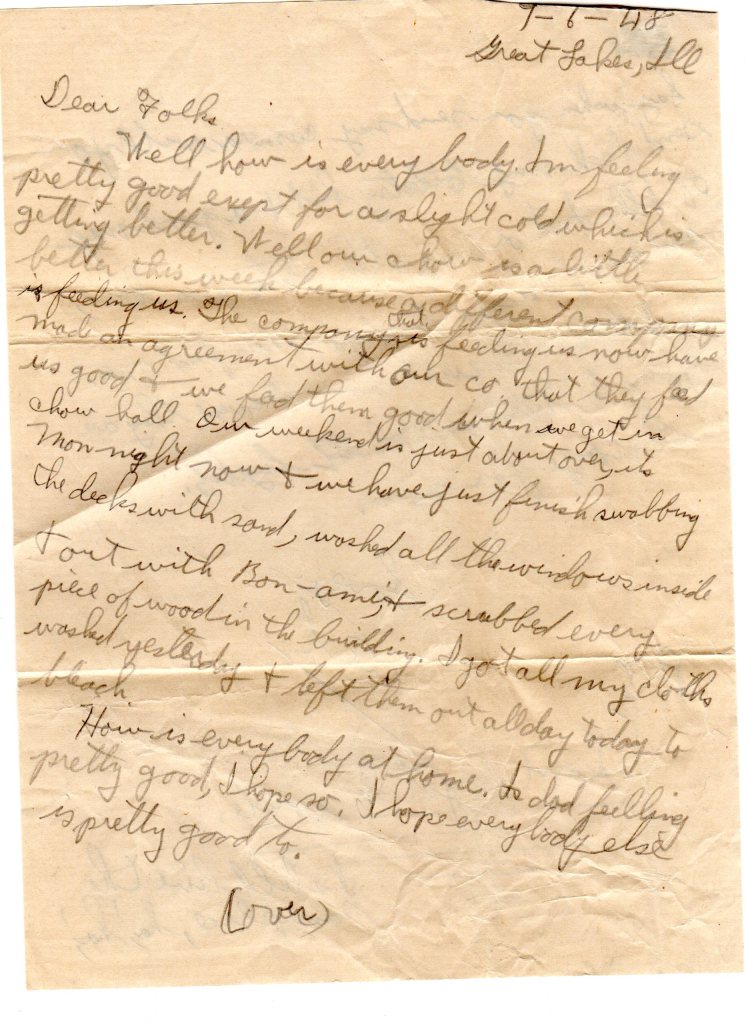 9-6-48
Great Lakes, Ill
Dear Folks
Well how is every body. Im feeling
pretty good exept for a slight cold which is
getting better. Well our chow is a little
better this week because a different company
is feeding us. The company that is feeding us now have
made an agreement with our co that they feed
us good & we feed them good when we get in
chow hall. Our weekend is just about over, its
Mon night now & we have just finish swabbing
the decks with sand, washed all the windows inside
& out with Bon-ami, & scrubbed every
piece of wood in the building. I got all my cloths
washed yesterdy & left them out all day today to
bleach
How is every body at home. Is dad feelling
pretty good, I hope so. I hope every body else
is pretty good to.
(over)